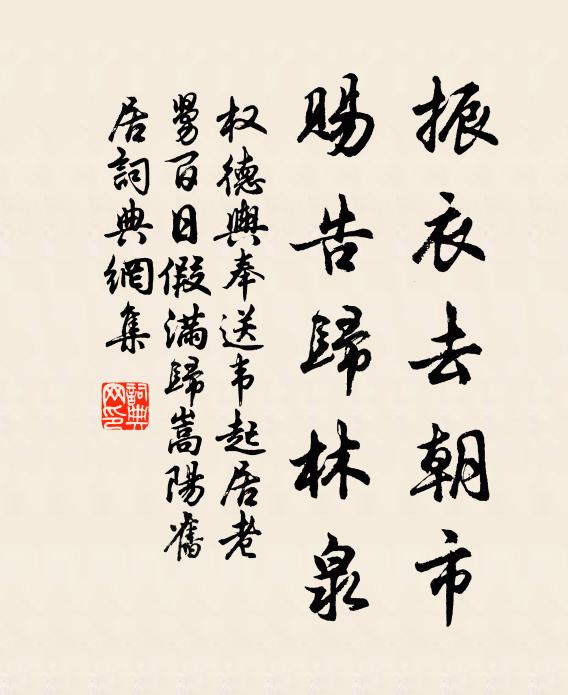 振衣去朝市
賜告歸林泉
权德輿奉送韦起居老
舅百日假满歸嵩陽舊
居詞典網集
詞典网印